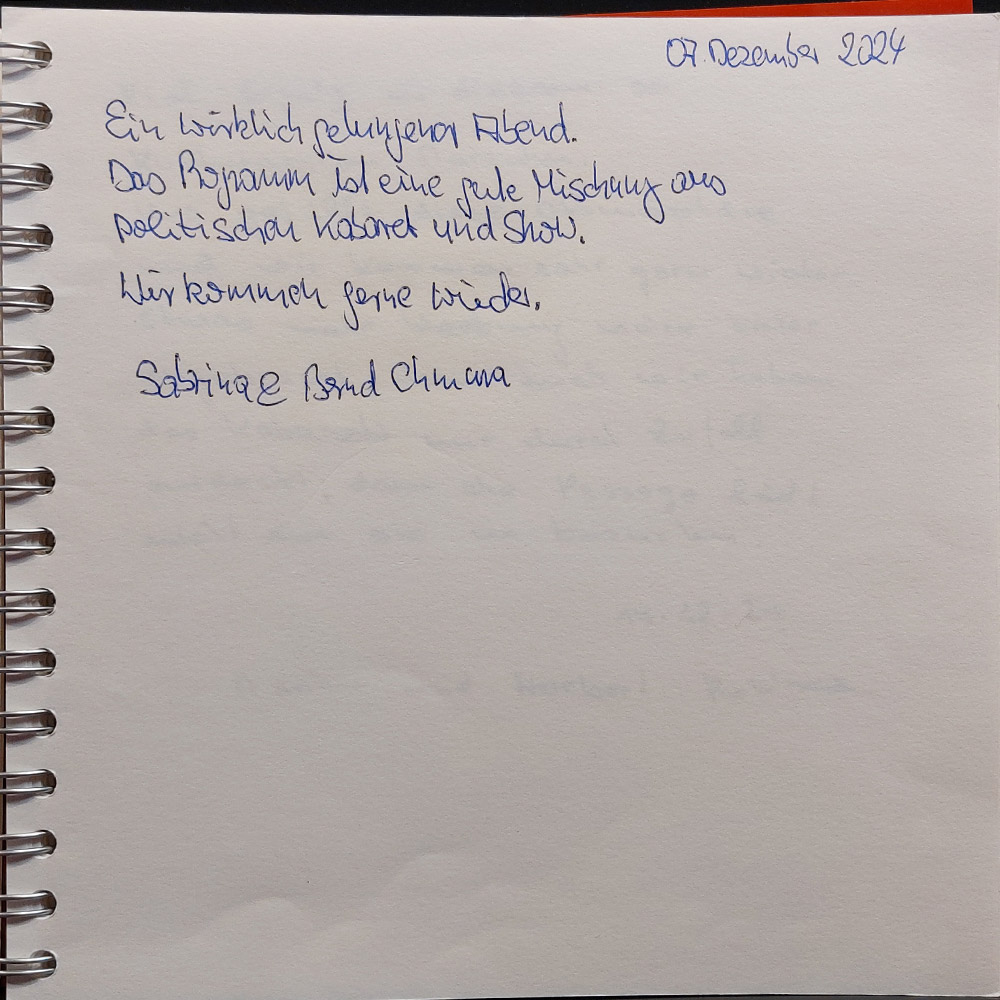 07. Dezember 2024
Ein wirklich gelungener Abend.
Das Programm ist eine gute Mischung aus
politischen Kabaret und Show.
Wir kommen gerne wieder.
Sabrina & Bernd Chmura